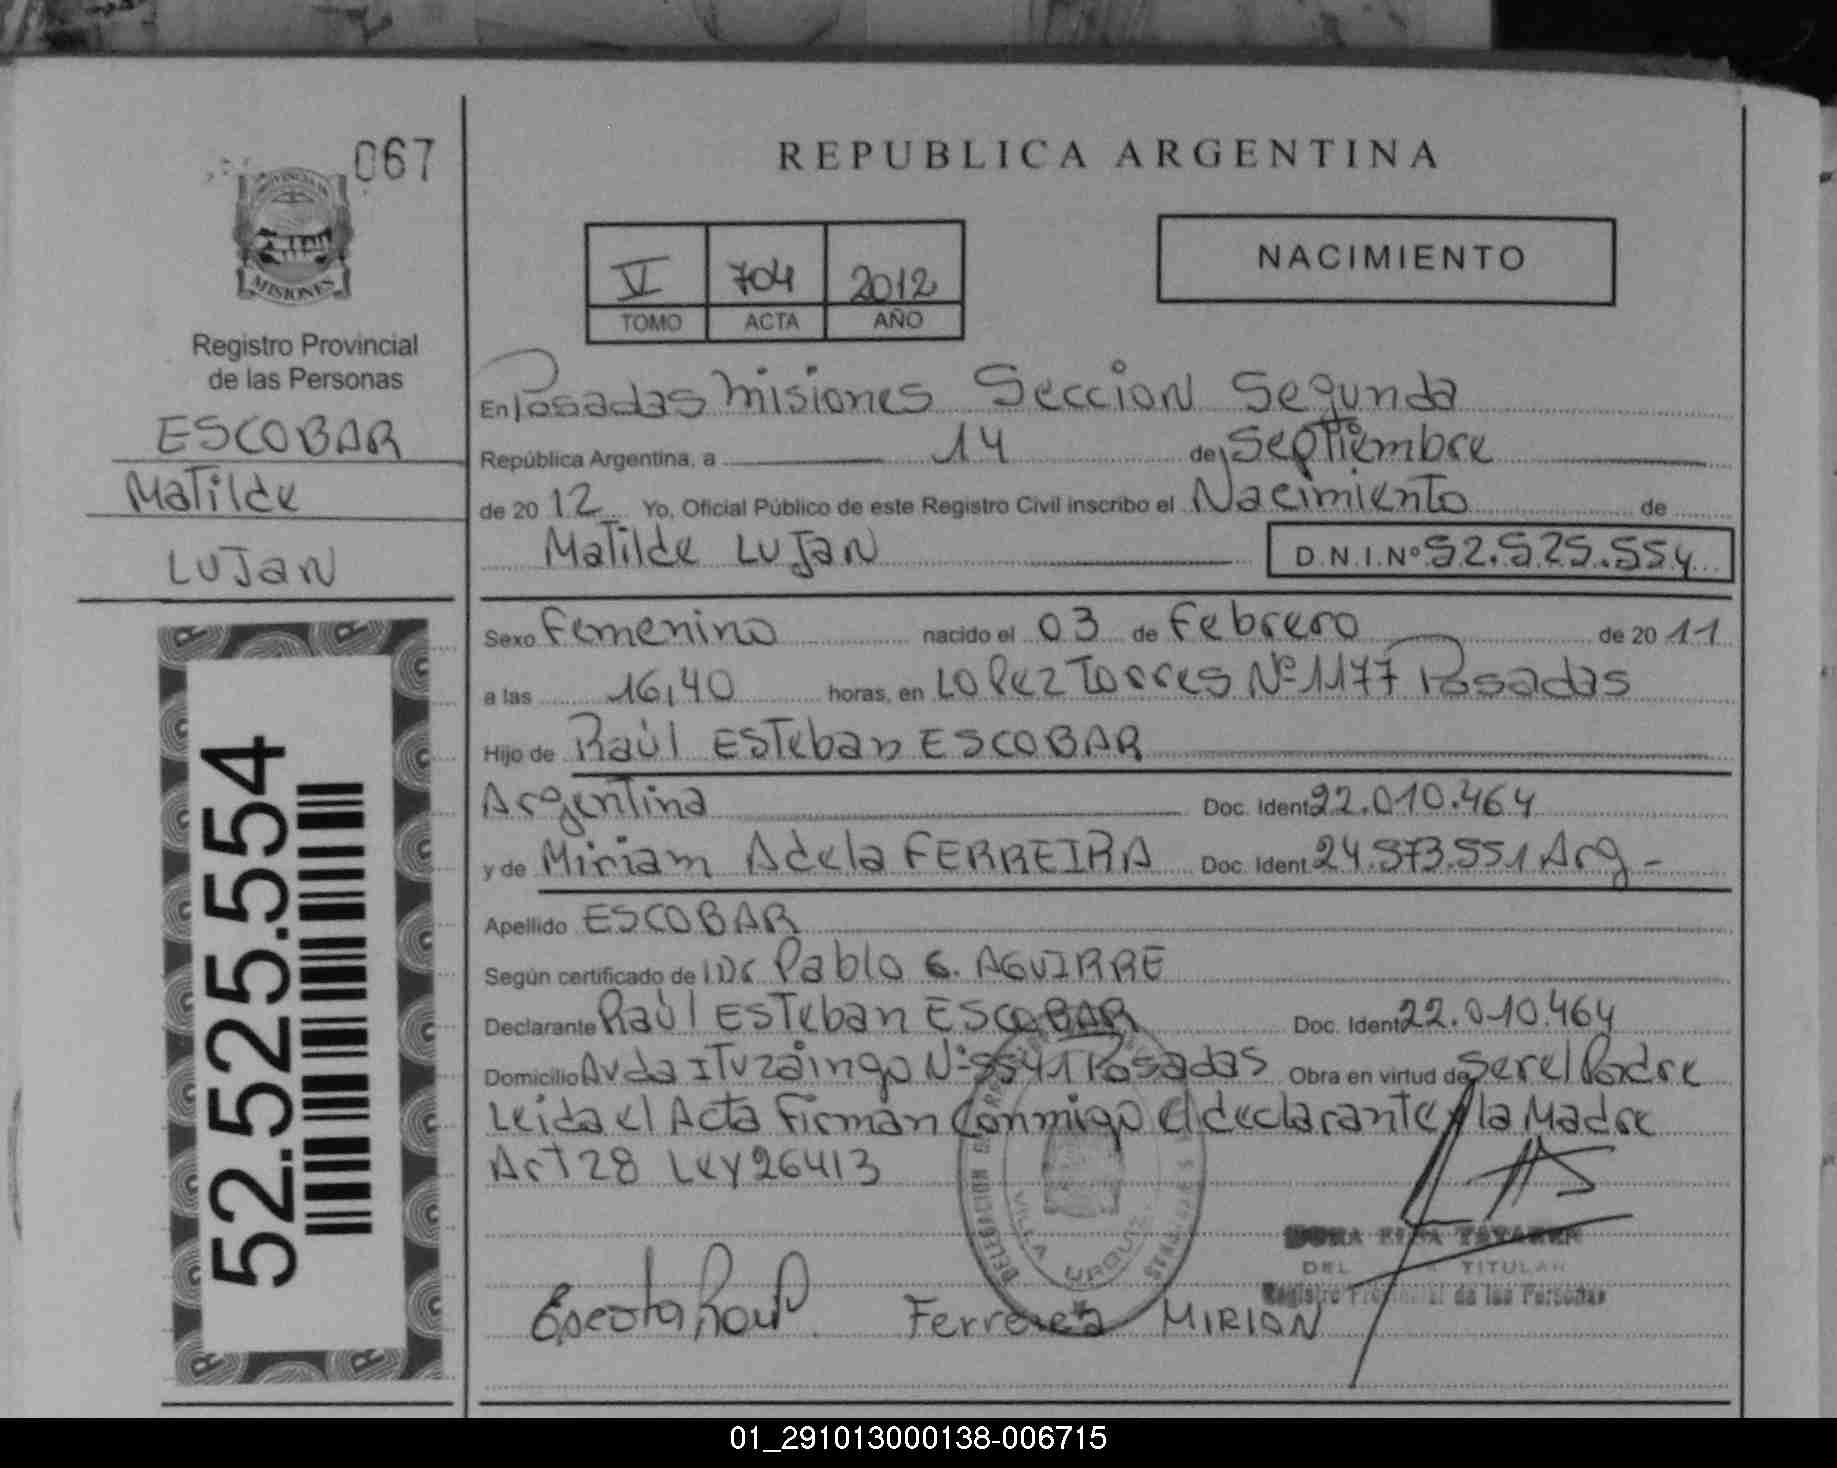 067
PROVINCIA DE
MISIONES
Registro Provincial
de las Personas
ESCOBAR
Matilde
LUJAN
52.525.554
REPUBLICA ARGENTINA
V 704 2012
TOMO ACTA AÑO
NACIMIENTO
En Posadas Misiones Seccion Segunda
República Argentina, a 14 de Septiembre
de 2012 Yo, Oficial Público de este Registro Civil inscribo el Nacimiento de
Matilde LUJAN D.N.I.Nº 52.525.554
Sexo Femenino nacido el 03 de Febrero de 2011
a las 16,40 horas, en LOPez Torres Nº 1177 Posadas
Hijo de Raúl ESTeban ESCOBAR
Argentina Doc. Ident. 22.010.464
y de Miriam Adela FERREIRA Doc. Ident. 24.573.551 Arg -
Apellido ESCOBAR
Según certificado de Dr Pablo G. AGUIRRE
Declarante Raúl ESTeban ESCOBAR Doc. Ident. 22.010.464
Domicilio Avda ITuzaingo Nº 5541 Posadas Obra en virtud de ser el Padre
Leida el Acta Firman Conmigo el declarante y la Madre
Art 28 Ley 26413
DELEGACION
VILLA URQUIZA
ELSA
DEL TITULAR
Registro Provincial de las Personas
Ferreira MIRIAN
01_291013000138-006715